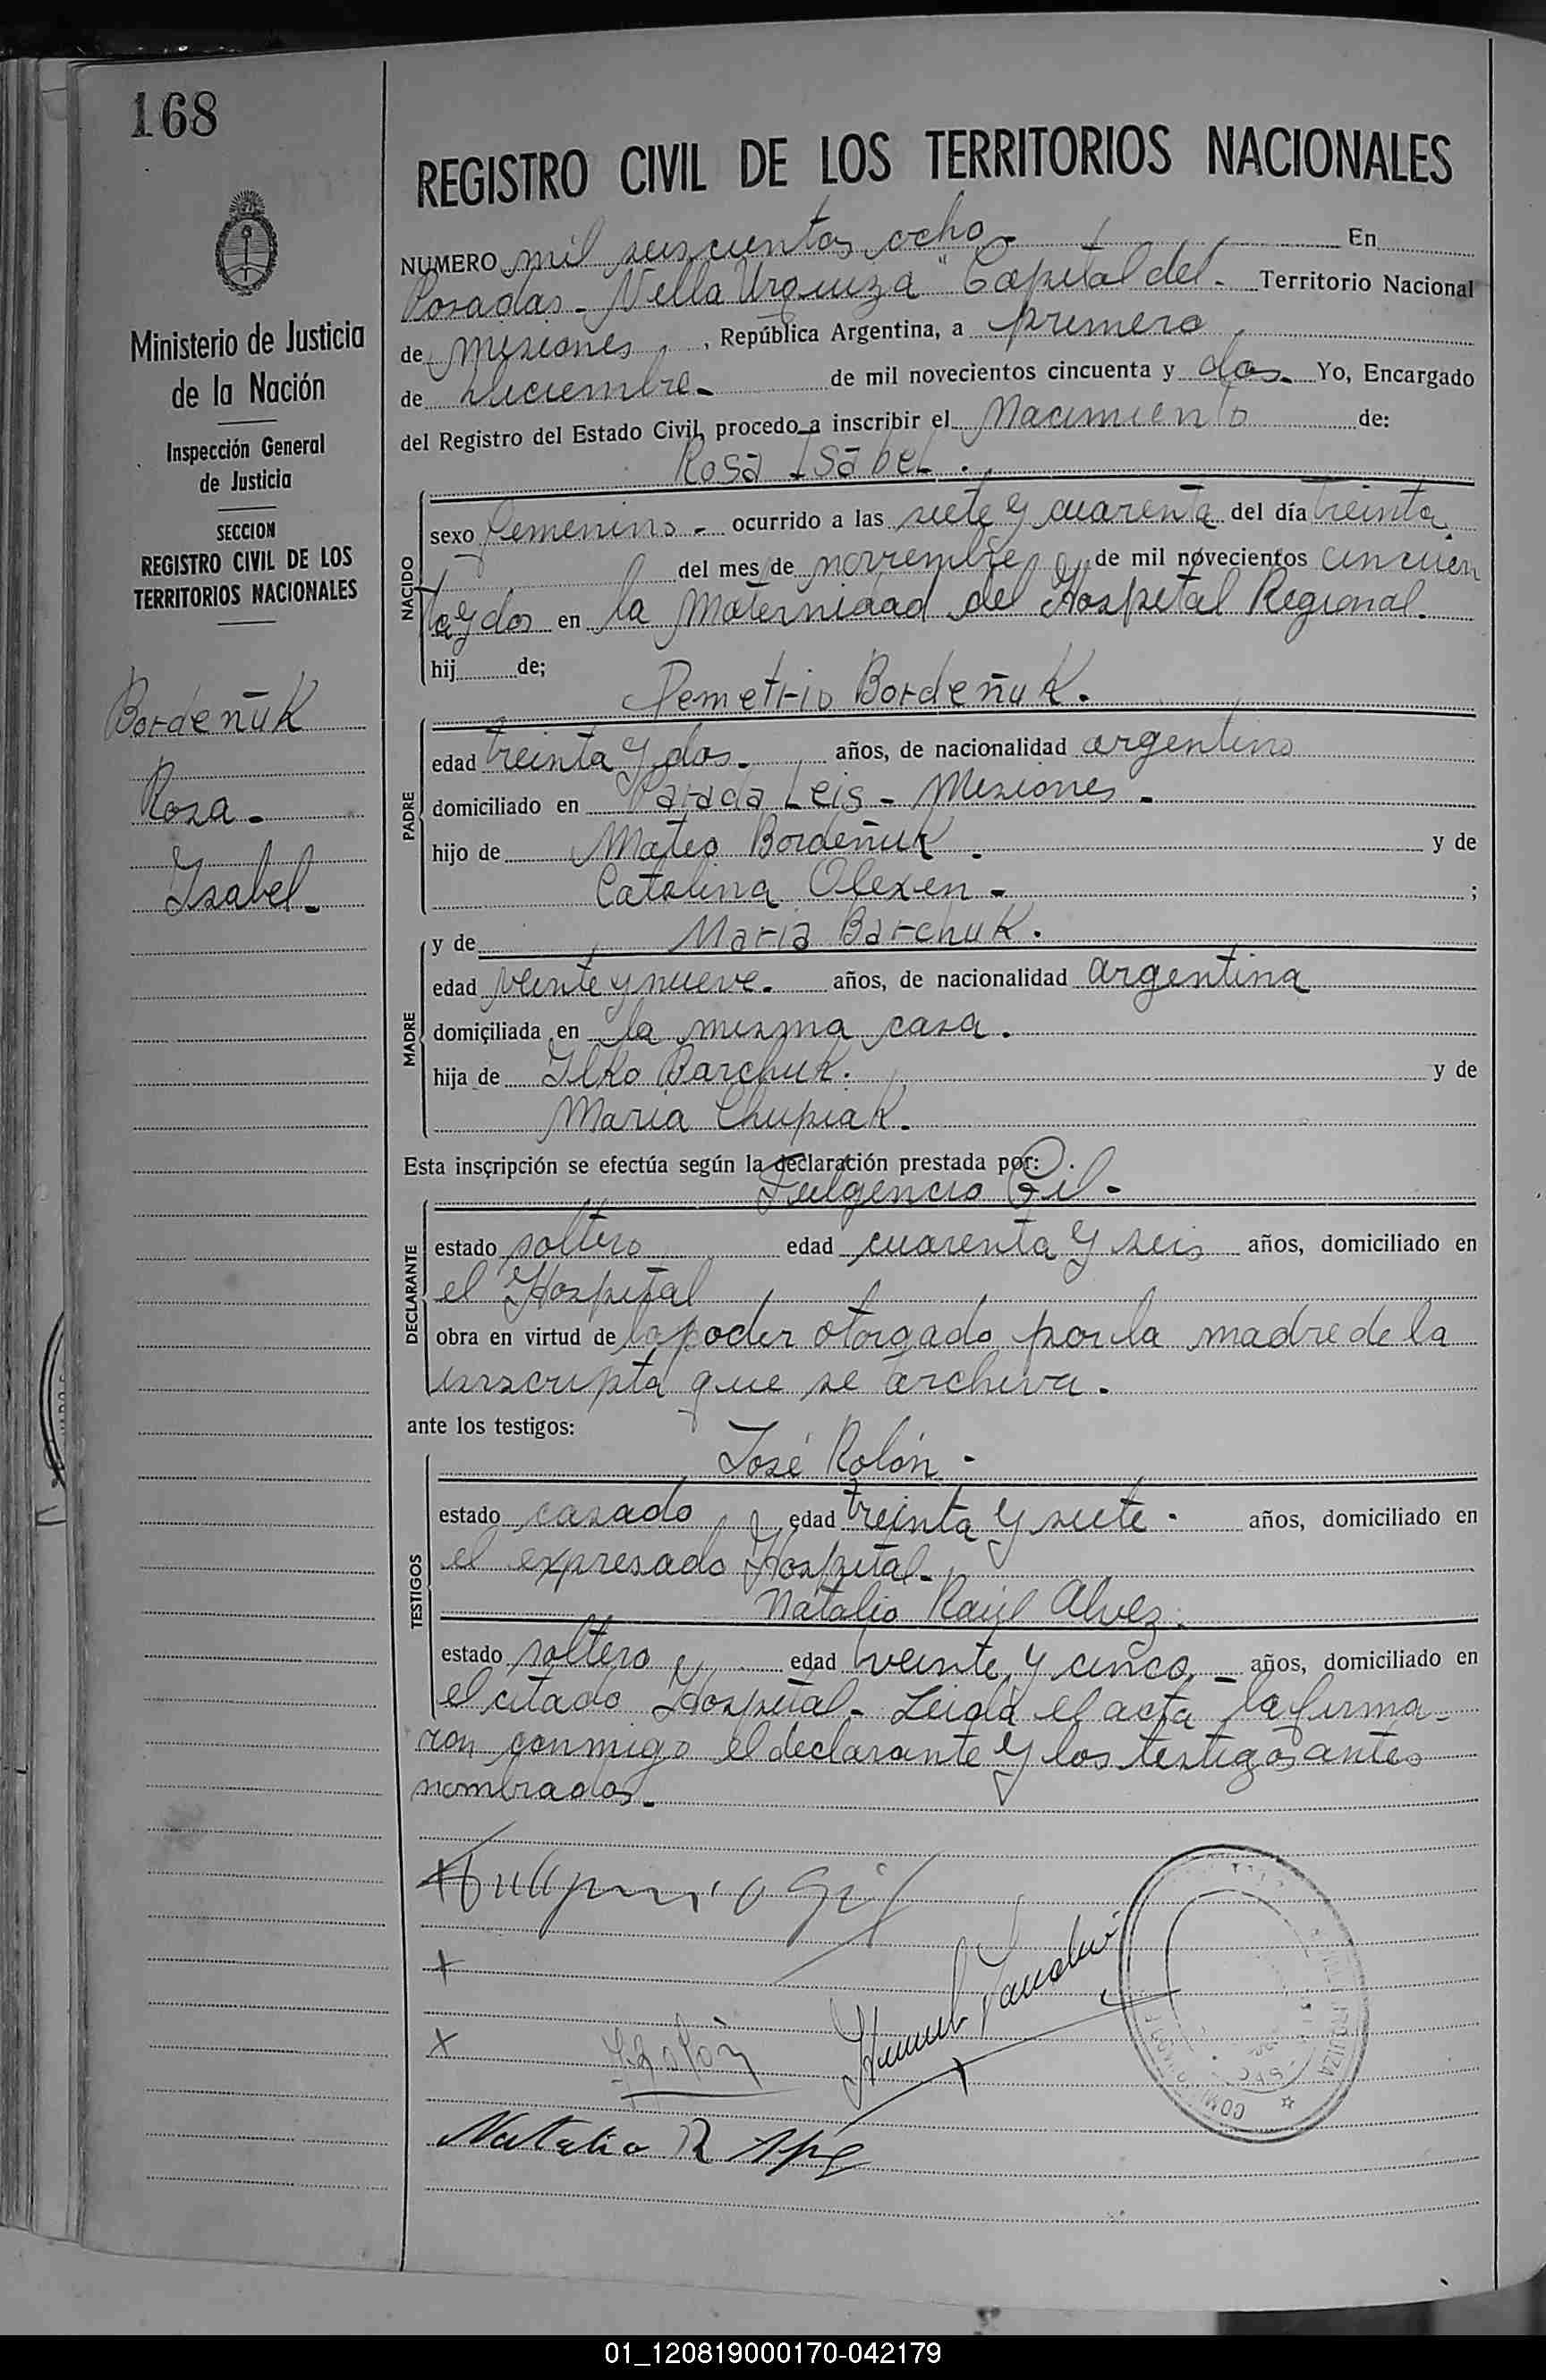 168
Ministerio de Justicia
de la Nación
Inspección General
de Justicia
SECCION
REGISTRO CIVIL DE LOS
TERRITORIOS NACIONALES
Bordeñuk
Rosa.-
Isabel.-
REGISTRO CIVIL DE LOS TERRITORIOS NACIONALES
NUMERO mil seiscientos ocho.- En
Posadas - Villa Urquiza" Capital del.- Territorio Nacional
de Misiones, República Argentina, a primero
de Diciembre.- de mil novecientos cincuenta y dos.- Yo, Encargado
del Registro del Estado Civil, procedo a inscribir el Nacimiento de:
Rosa Isabel.
NACIDO
sexo femenino.- ocurrido a las siete y cuarenta del día treinta
del mes de noviembre de mil novecientos cincuen
ta y dos en la Maternidad del Hospital Regional.
hij de;
PADRE
Demetrio Bordeñuk.
edad treinta y dos.- años, de nacionalidad argentino
domiciliado en Parada Leis - Misiones.-
hijo de Mateo Bordeñuk.- y de
Catalina Olexen.- ;
MADRE
y de Maria Barchuk.
edad veinte y nueve. años, de nacionalidad argentina
domiciliada en la misma casa.
hija de Ilko Barchuk. y de
Maria Chupiak.
Esta inscripción se efectúa según la declaración prestada por:
Fulgencio Gil.-
DECLARANTE
estado soltero edad cuarenta y seis años, domiciliado en
el Hospital
obra en virtud de poder otorgado por la madre de la
inscripta que se archiva.
ante los testigos:
TESTIGOS
José Rolón.-
estado casado edad treinta y siete. años, domiciliado en
el expresado Hospital.-
Natalio Raúl Alvez.
estado soltero y edad veinte y cinco.- años, domiciliado en
el citado Hospital.- Leida el acta la firma-
ron conmigo el declarante y los testigos antes
nombrados.-
Gil
Rolón
Natalio R
URQUIZA
01_120819000170-042179